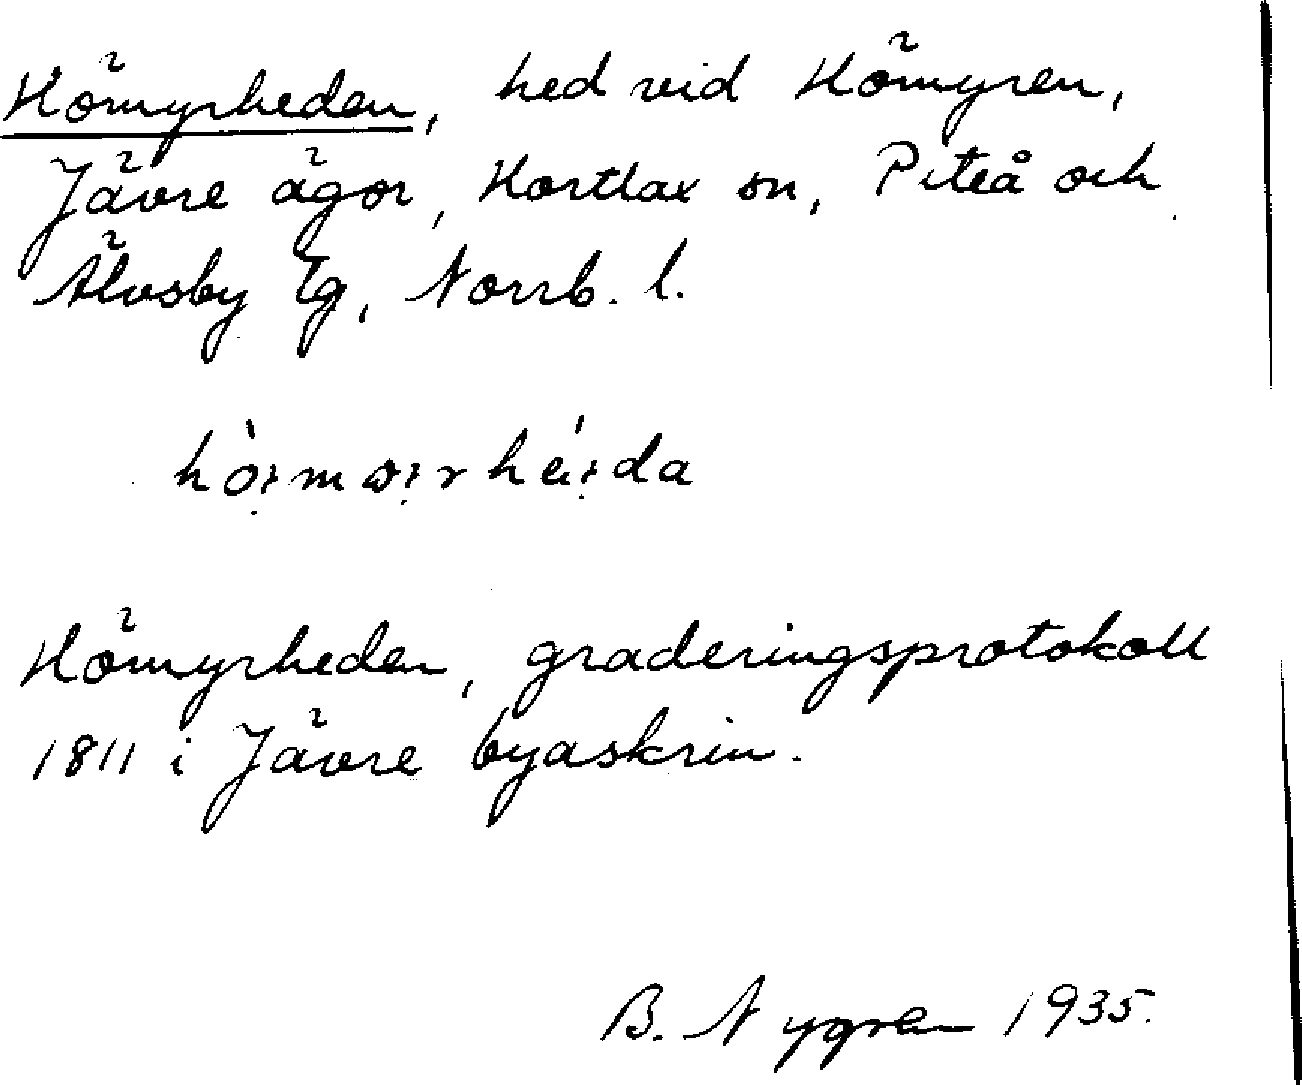 Hömyrheden, hed vid Hömyren,
Jävre ägor, Hortlax sn, Piteå och
Älvsby tg, Norrb. l.
Hömyrheden, graderingsprotokoll
1811 i Jävre byaskrin.
B. Nygren 1935.